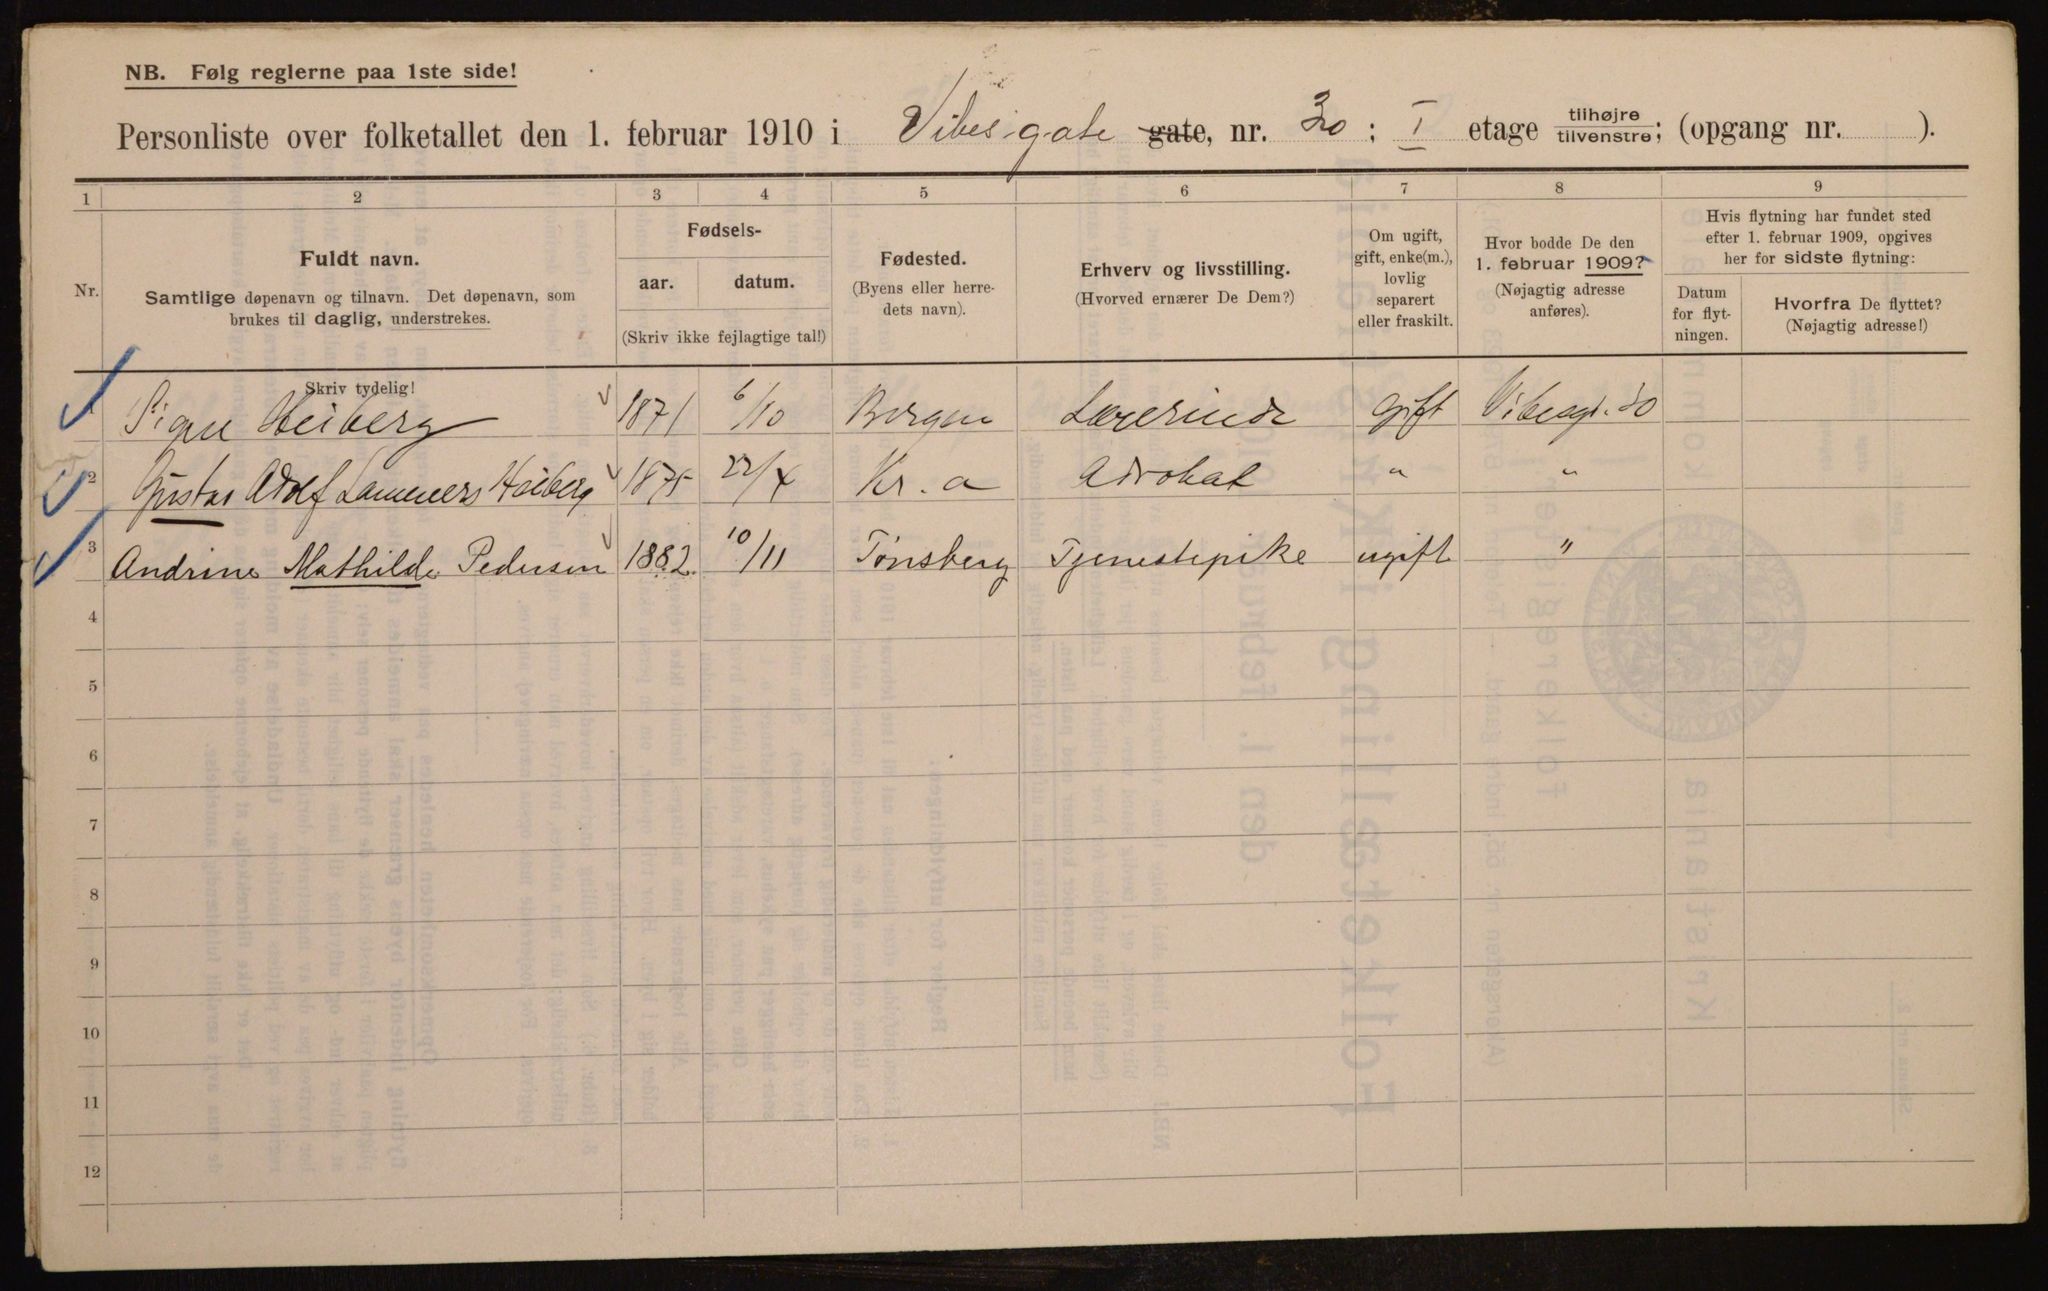 NB. Følg reglerne paa 1ste side!
Personliste over folketallet den 1. februar 1910 i Vibes gate gate, nr. 20 : I etage tilhøjre tilvenstre; (opgang nr. ).
1 2 3 4 5 6 7 8 9
Nr.
Fuldt navn.
Samtlige døpenavn og tilnavn. Det døpenavn, som
brukes til daglig, understrekes.
Fødsels-
aar. datum.
(Skriv ikke fejlagtige tal!)
Fødested.
(Byens eller herre-
dets navn).
Erhverv og livsstilling.
(Hvorved ernærer De Dem?)
Om ugift,
gift, enke(m.),
lovlig
separert
eller fraskilt.
Hvor bodde De den
1. februar 1909?
(Nøjagtig adresse
anføres).
Hvis flytning har fundet sted
efter 1. februar 1909, opgives
her for sidste flytning:
Datum
for flyt-
ningen.
Hvorfra De flyttet?
(Nøjagtig adresse!)
Skriv tydelig!
Signe Heiberg 1871 6/10 Bergen Lærerinde gift Vibesgt. 20
2 Gustav Adolf Lammers Heiberg 1875 22/4 Kr.a Advokat " "
3 Andrine Mathilde Pedersen 1882 10/11 Tønsberg Tjenestepike ugift "
4
5
6
7
8
9
10
11
12